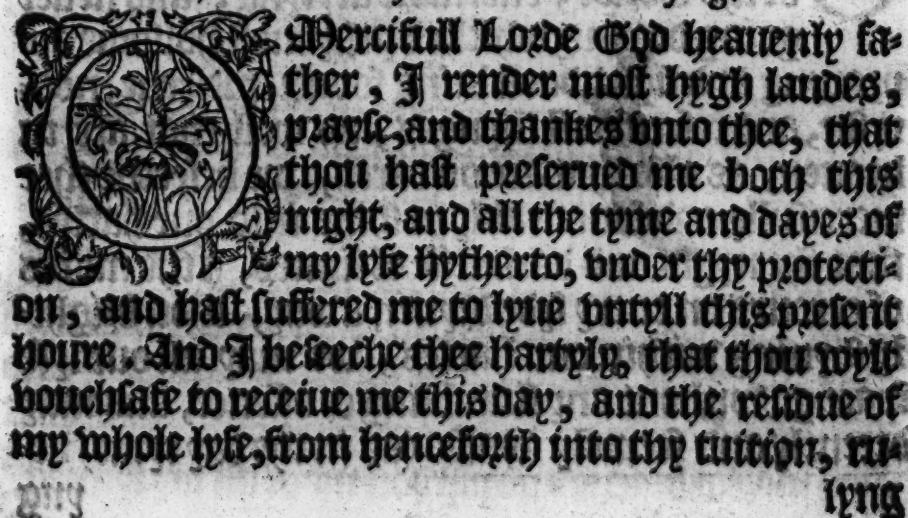 O Mercifull Lorde God heauenly fa-
ther, I render most hygh laudes,
prayse, and thankes vnto thee, that
thou hast preserued me both this
night, and all the tyme and dayes of
my lyfe hytherto, vnder thy protecti-
on, and hast suffered me to lyue vntyll this present
houre. And I beseeche thee hartyly, that thou wylt
vouchsafe to receiue me this day, and the residue of
my whole lyfe, from henceforth into thy tuition, ru-
lyng